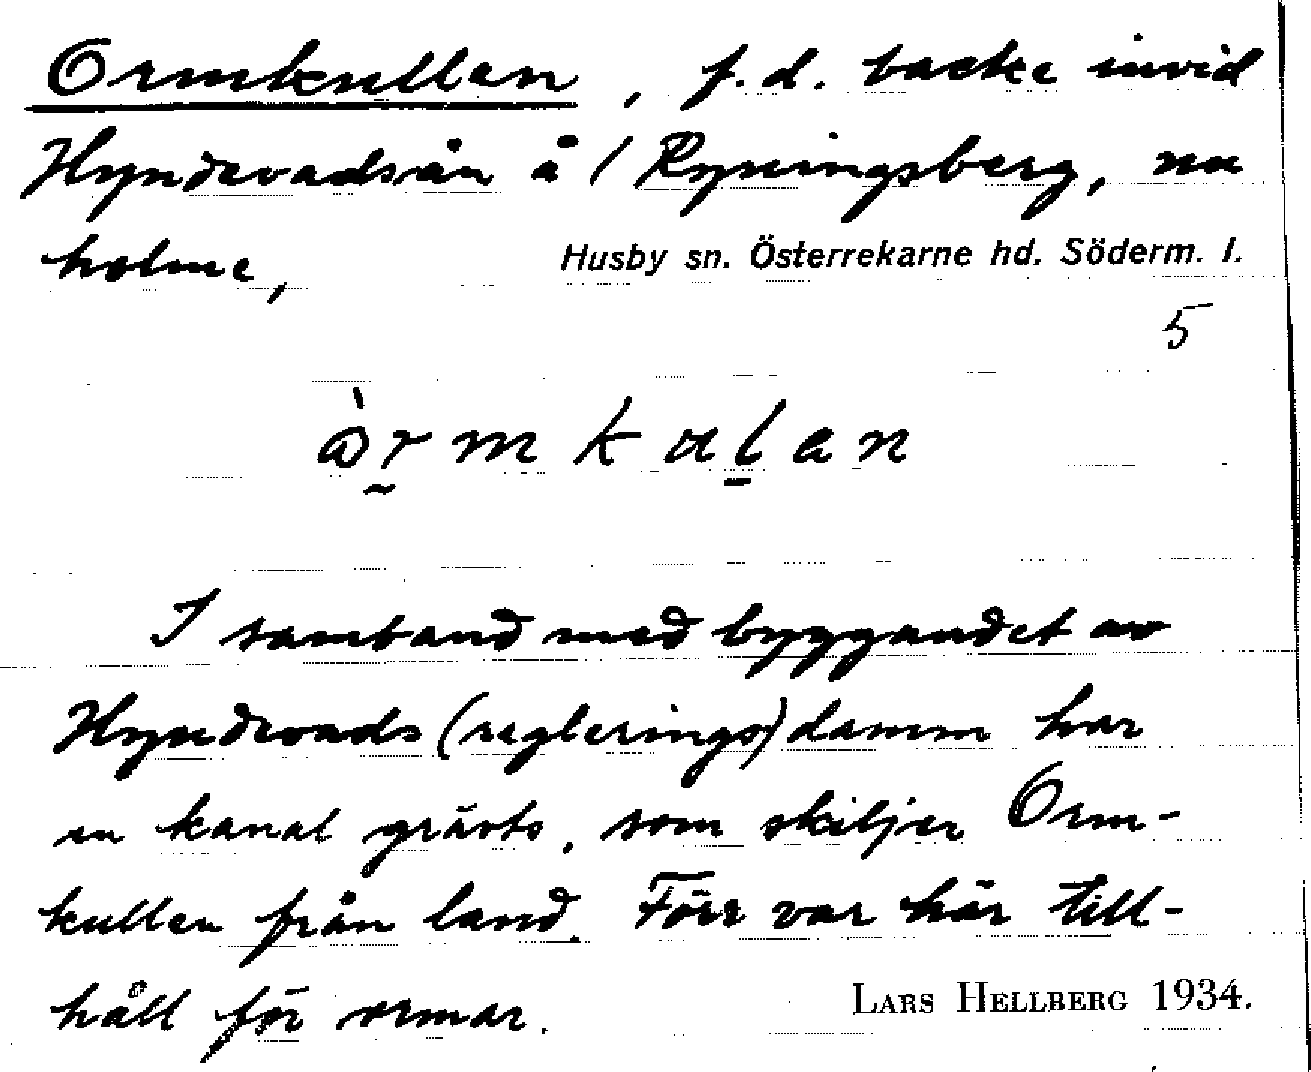 Ormkullen, f.d. backe invid
Hyndevadsån å / Ryningsberg, nu
holme,
Husby sn. Österrekarne hd. Söderm. l.
5
òrmkulan
I samband med byggandet av
Hyndevads (reglerings) damm har
en kanal grävts, som skiljer Orm-
kullen från land. Förr var här till-
håll för ormar.
LARS HELLBERG 1934.